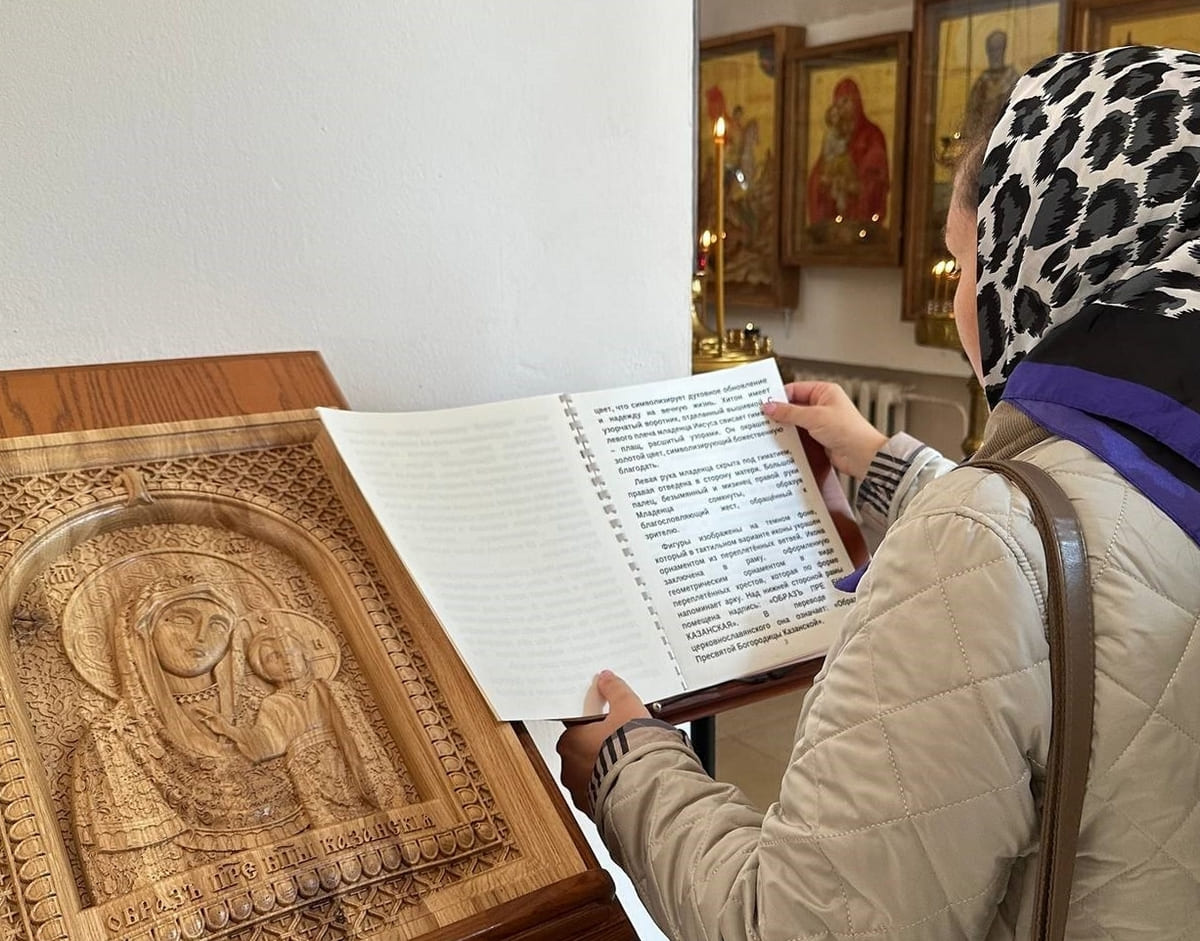 цвет, что символизирует духовное обновление
и надежду на вечную жизнь. Хитон имеет
узорчатый воротник, отделанный вышивкой. С
левого плеча младенца Иисуса свисает гиматий
– плащ, расшитый узорами. Он окрашен в
золотой цвет, символизирующий божественную
благодать.
Левая рука младенца скрыта под гиматием,
правая отведена в сторону матери. Большой
палец, безымянный и мизинец правой руки
Младенца сомкнуты, образуя
благословляющий жест, обращённый к
зрителю.
Фигуры изображены на темном фоне,
который в тактильном варианте иконы украшен
орнаментом из переплетённых ветвей. Икона
заключена в раму, оформленную
геометрическим орнаментом в виде
переплетённых крестов, которая по форме
напоминает арку. Над нижней стороной рамы
помещена надпись: «ОБРАЗЪ ПРЕ
КАЗАНСКАЯ». В переводе с
церковнославянского она означает: «Образ
Пресвятой Богородицы Казанской».
3
ОБРАЗЪ ПРЕ БЦЫ КАЗАНСКІѦ